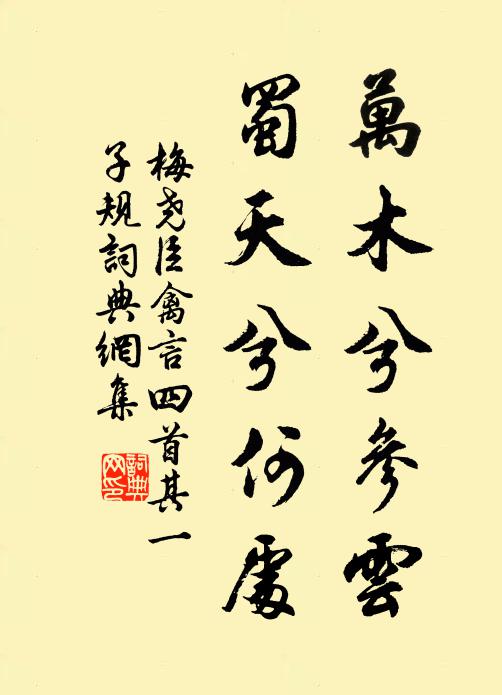 萬木兮參雲
蜀天兮何處
梅堯臣禽言四首其一
子規詞典網集
詞典網印